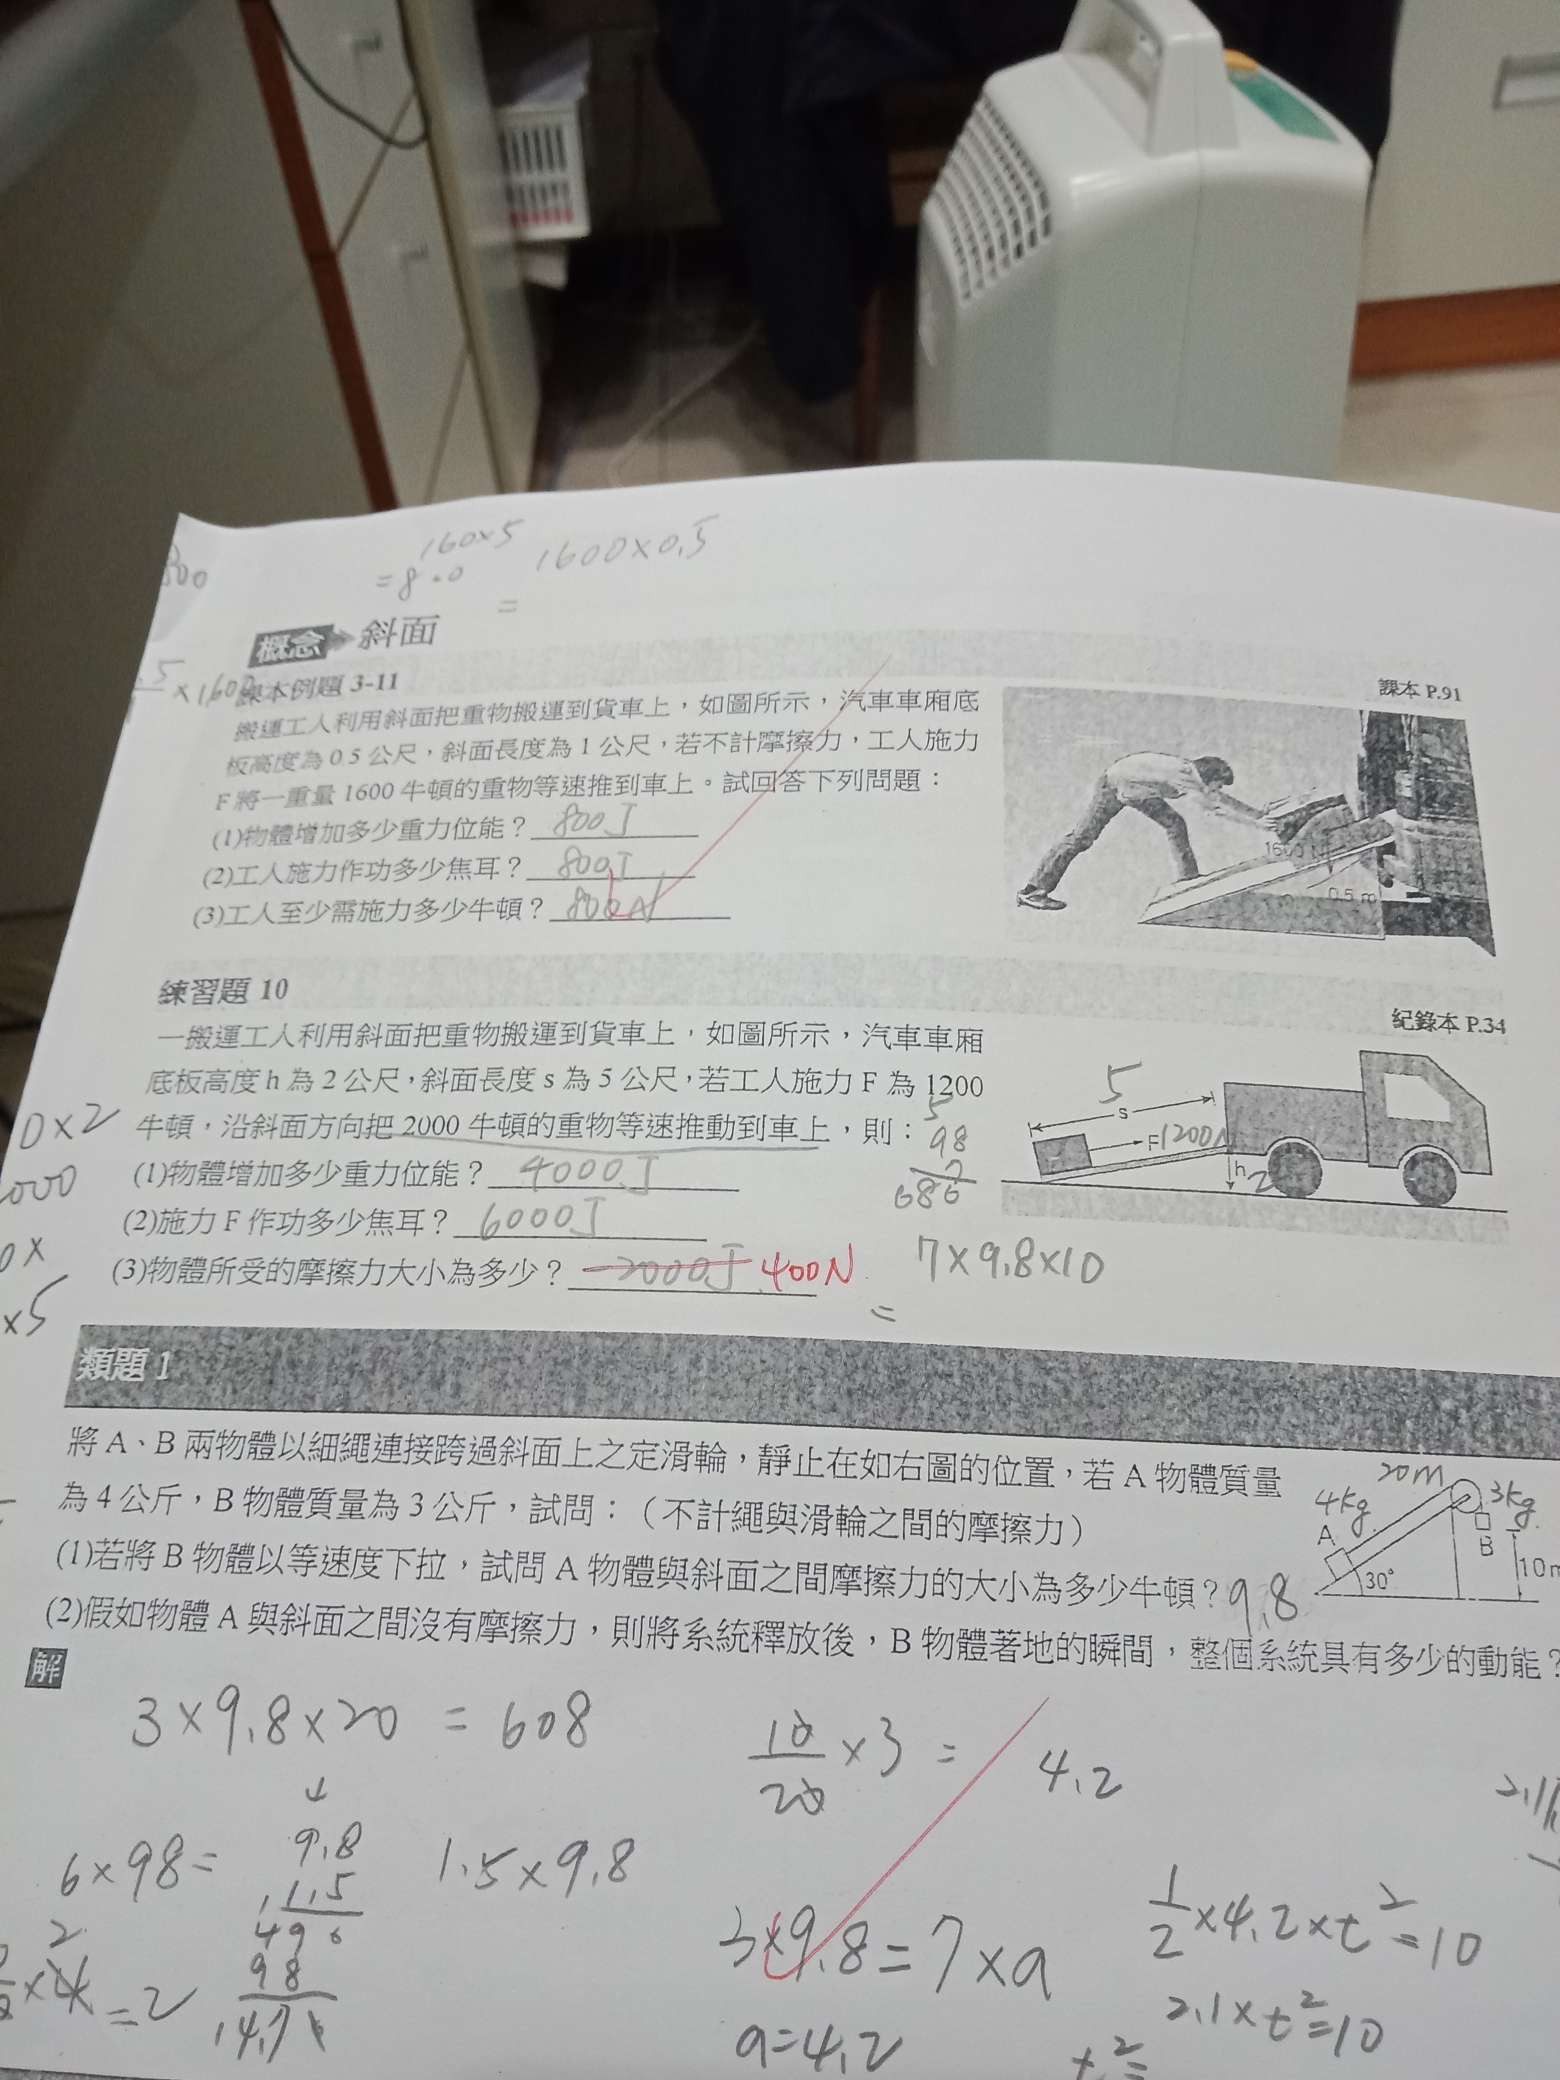 160×5
=8.0
1600×0.5
=
800
概念 斜面
×1600
課本例題 3-11
課本 P.91
搬運工人利用斜面把重物搬運到貨車上，如圖所示，汽車車廂底
板高度為 0.5 公尺，斜面長度為 1 公尺，若不計摩擦力，工人施力
F 將一重量 1600 牛頓的重物等速推到車上。試回答下列問題：
(1)物體增加多少重力位能？ 800J
(2)工人施力作功多少焦耳？ 800J
(3)工人至少需施力多少牛頓？ 800N
1600 N
0.5 m
練習題 10
紀錄本 P.34
一搬運工人利用斜面把重物搬運到貨車上，如圖所示，汽車車廂
底板高度 h 為 2 公尺，斜面長度 s 為 5 公尺，若工人施力 F 為 1200
牛頓，沿斜面方向把 2000 牛頓的重物等速推動到車上，則：
(1)物體增加多少重力位能？ 4000J
(2)施力 F 作功多少焦耳？ 6000J
(3)物體所受的摩擦力大小為多少？ 2000J 400N
5
s
F 1200N
h 2
5
98
7
686
7×9.8×10
=
0×2
000
0×
×5
類題 1
將 A、B 兩物體以細繩連接跨過斜面上之定滑輪，靜止在如右圖的位置，若 A 物體質量
為 4 公斤，B 物體質量為 3 公斤，試問：（不計繩與滑輪之間的摩擦力）
(1)若將 B 物體以等速度下拉，試問 A 物體與斜面之間摩擦力的大小為多少牛頓？ 9.8
(2)假如物體 A 與斜面之間沒有摩擦力，則將系統釋放後，B 物體著地的瞬間，整個系統具有多少的動能？
20m
4kg
3kg
A
B
30°
10m
解
3×9.8×20 = 608
10/20 ×3 =
4.2
6×98=
9.8
1.5
490
98
14.7
1.5×9.8
3×9.8=7×a
a=4.2
1/2×4.2×t²=10
2.1×t²=10
t²=
=2